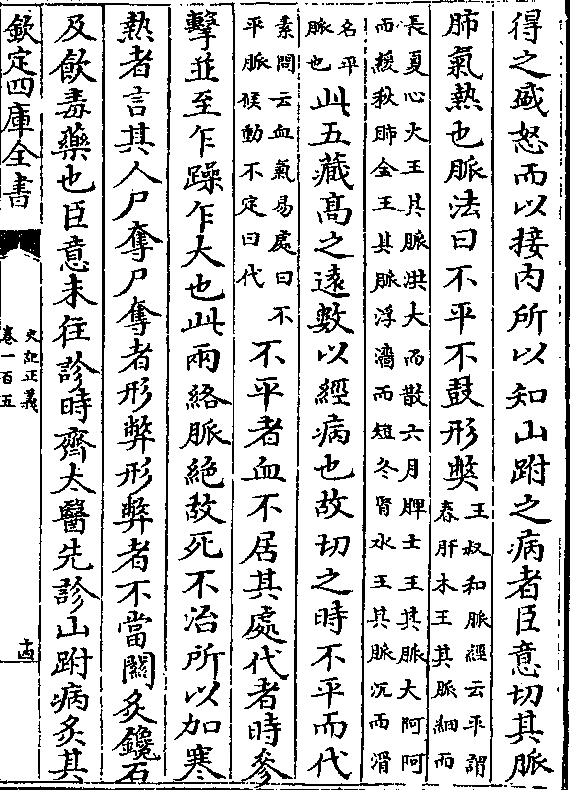 得之盛怒而以接内所以知山跗之病者臣意切其脉
肺氣熱也脉法曰不平不鼓形獘王叔和脈經云平謂春肝木王其脉細而
長夏心火王其脉洪大而散六月脾土王其脉大阿阿而緩秋肺金王其脉浮濇而短冬腎水王其脉沉而滑
名平脈也此五藏髙之遠數以經病也故切之時不平而代
素問云血氣易處曰不平脈候動不定曰代不平者血不居其處代者時參
擊並至乍躁乍大也此兩絡脈絶故死不治所以加寒
熱者言其人尸奪尸奪者形弊形弊者不當關灸鑱石
及飲毒藥也臣意未往診時齊太醫先診山跗病灸其
欽定四庫全書
史記正義
卷一百五
十四